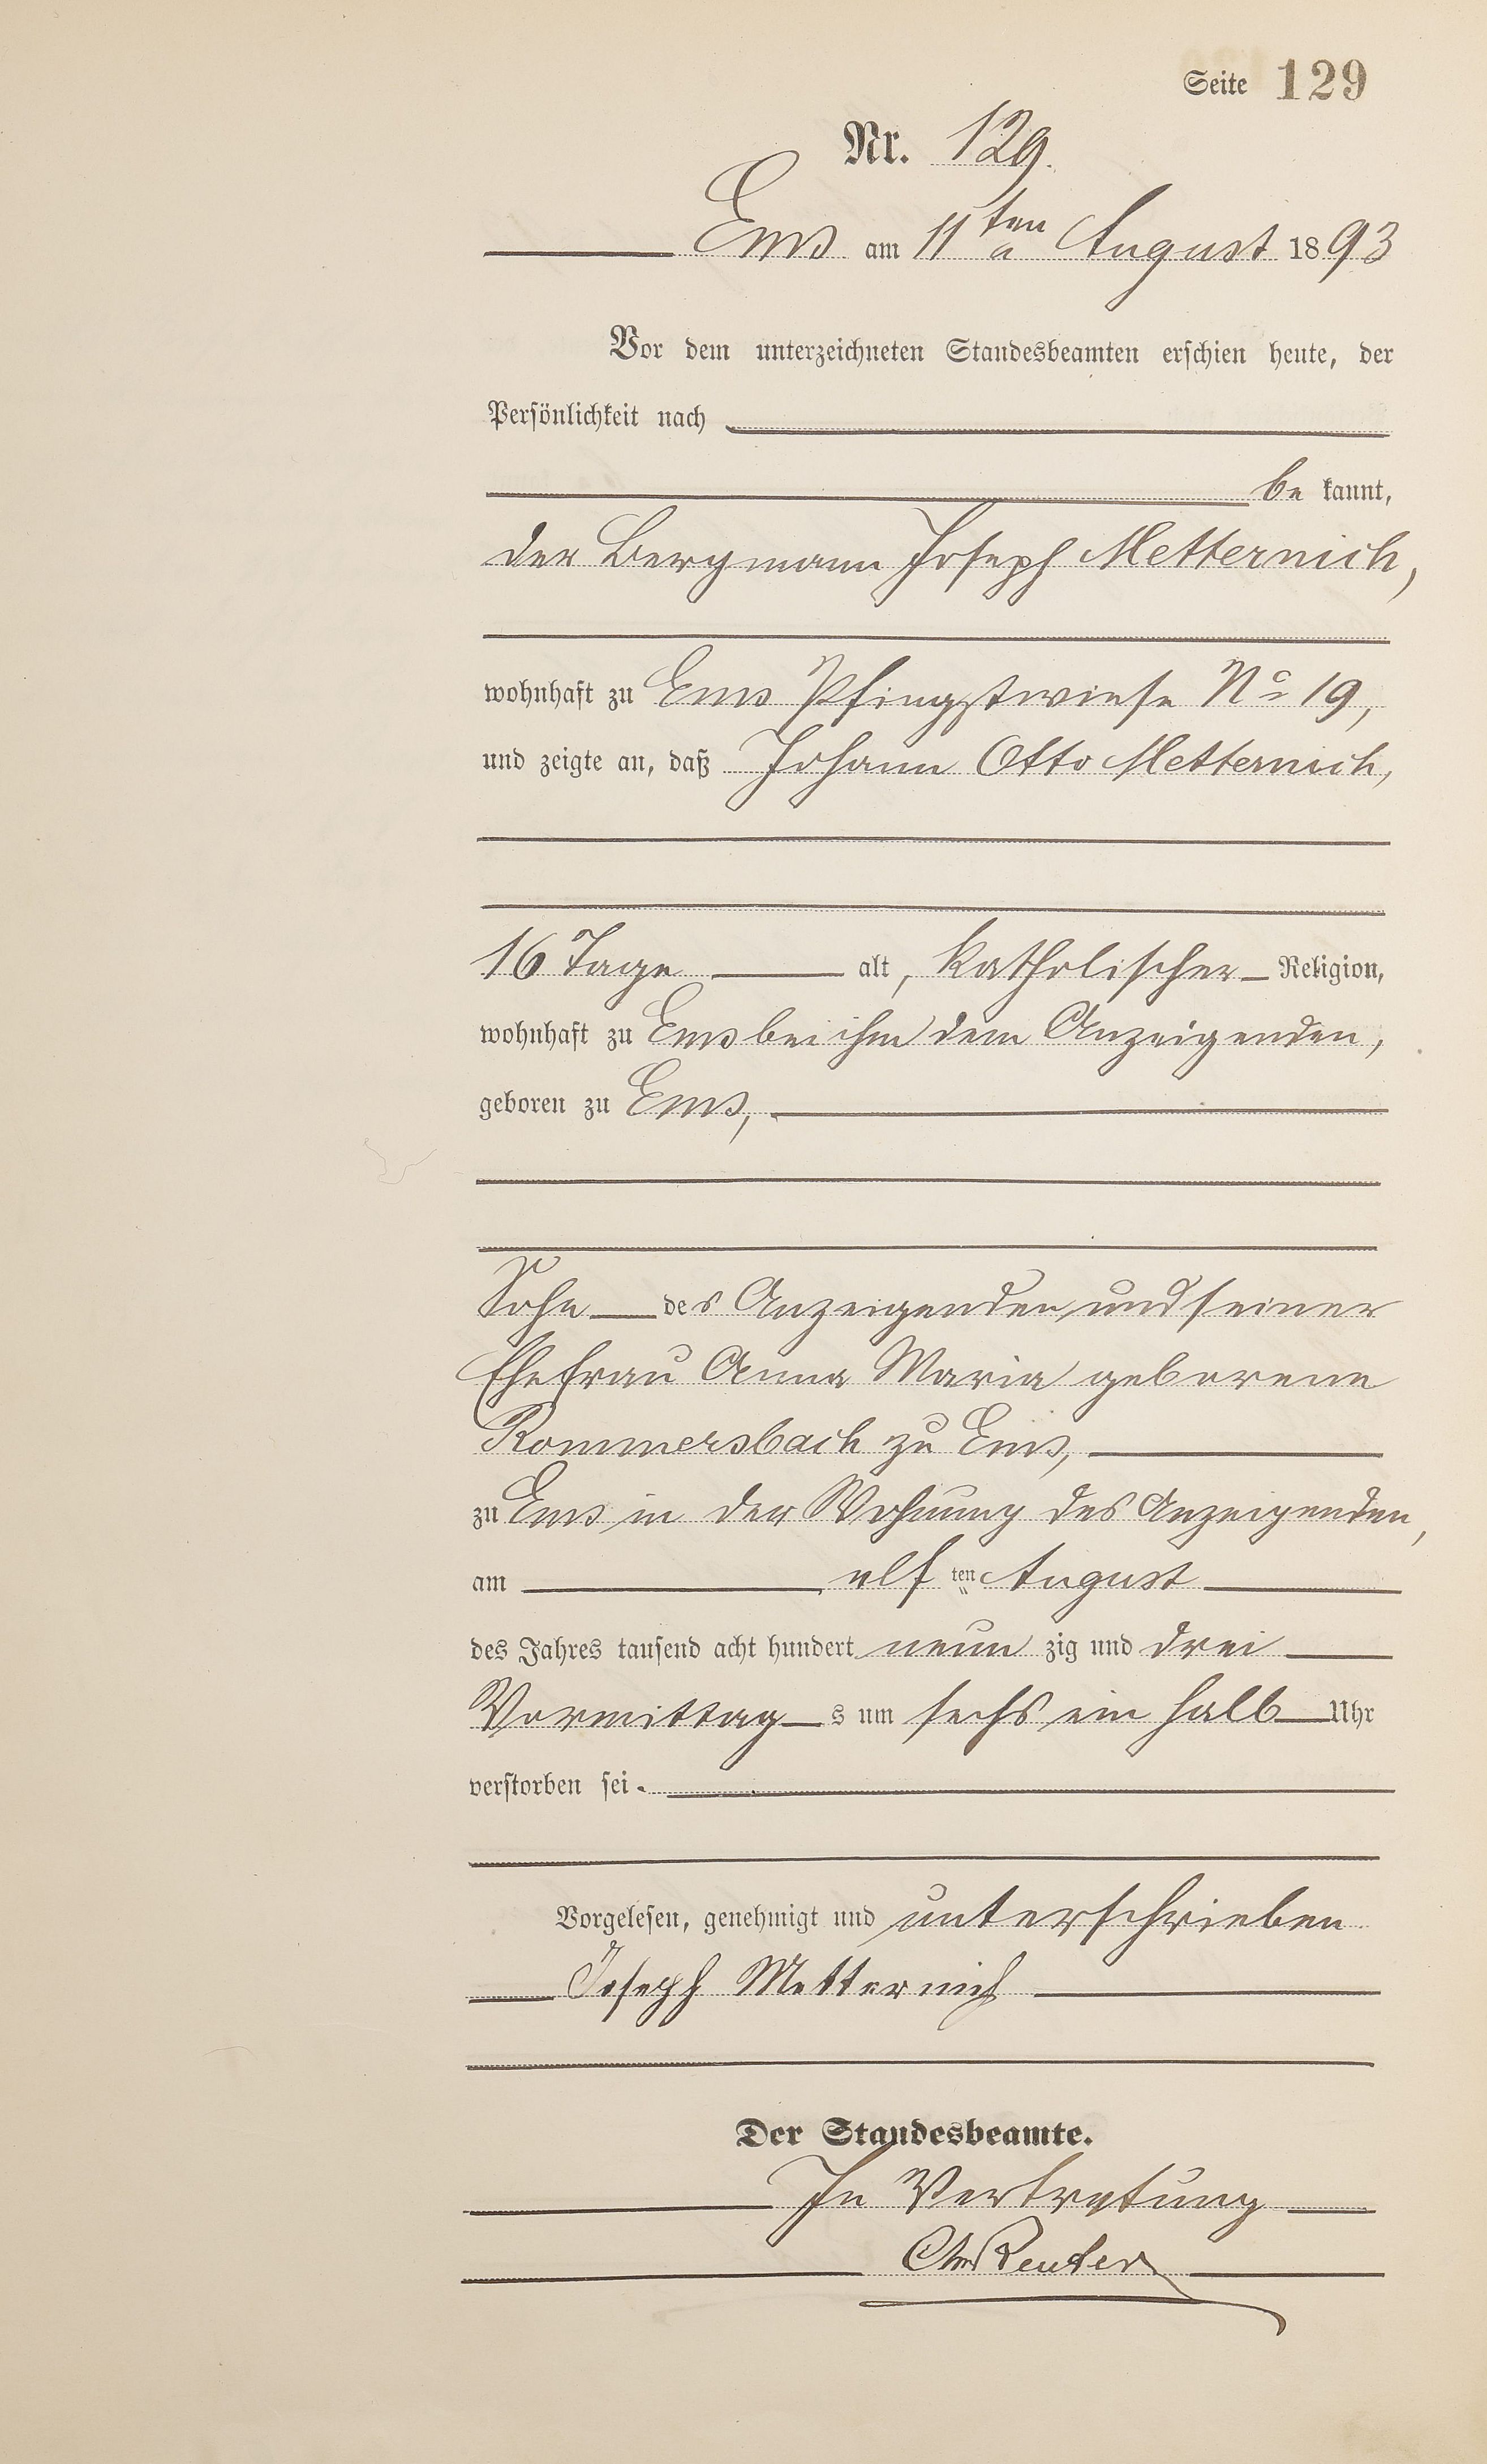 Seite 129
Nr. 129.
Ems am 11ten August 1893
Vor dem unterzeichneten Standesbeamten erschien heute, der
Persönlichkeit nach
be kannt,
der Bergmann Joseph Metternich,
wohnhaft zu Ems Pfingstwiese No 19,
und zeigte an, daß Johann Otto Metternich,
16 Tage alt, katholischer Religion,
wohnhaft zu Ems bei ihm dem Anzeigenden,
geboren zu Ems,
Sohn des Anzeigenden und seiner
Ehefrau Anna Maria geborene
Rommersbach zu Ems,
zu Ems in der Wohnung des Anzeigenden,
am elf ten August
des Jahres tausend acht hundert neun zig und drei
Vormittag s um sechs ein halb Uhr
verstorben sei.
Vorgelesen, genehmigt und unterschrieben
Joseph Metternich
Der Standesbeamte.
In Vertretung
Reuter